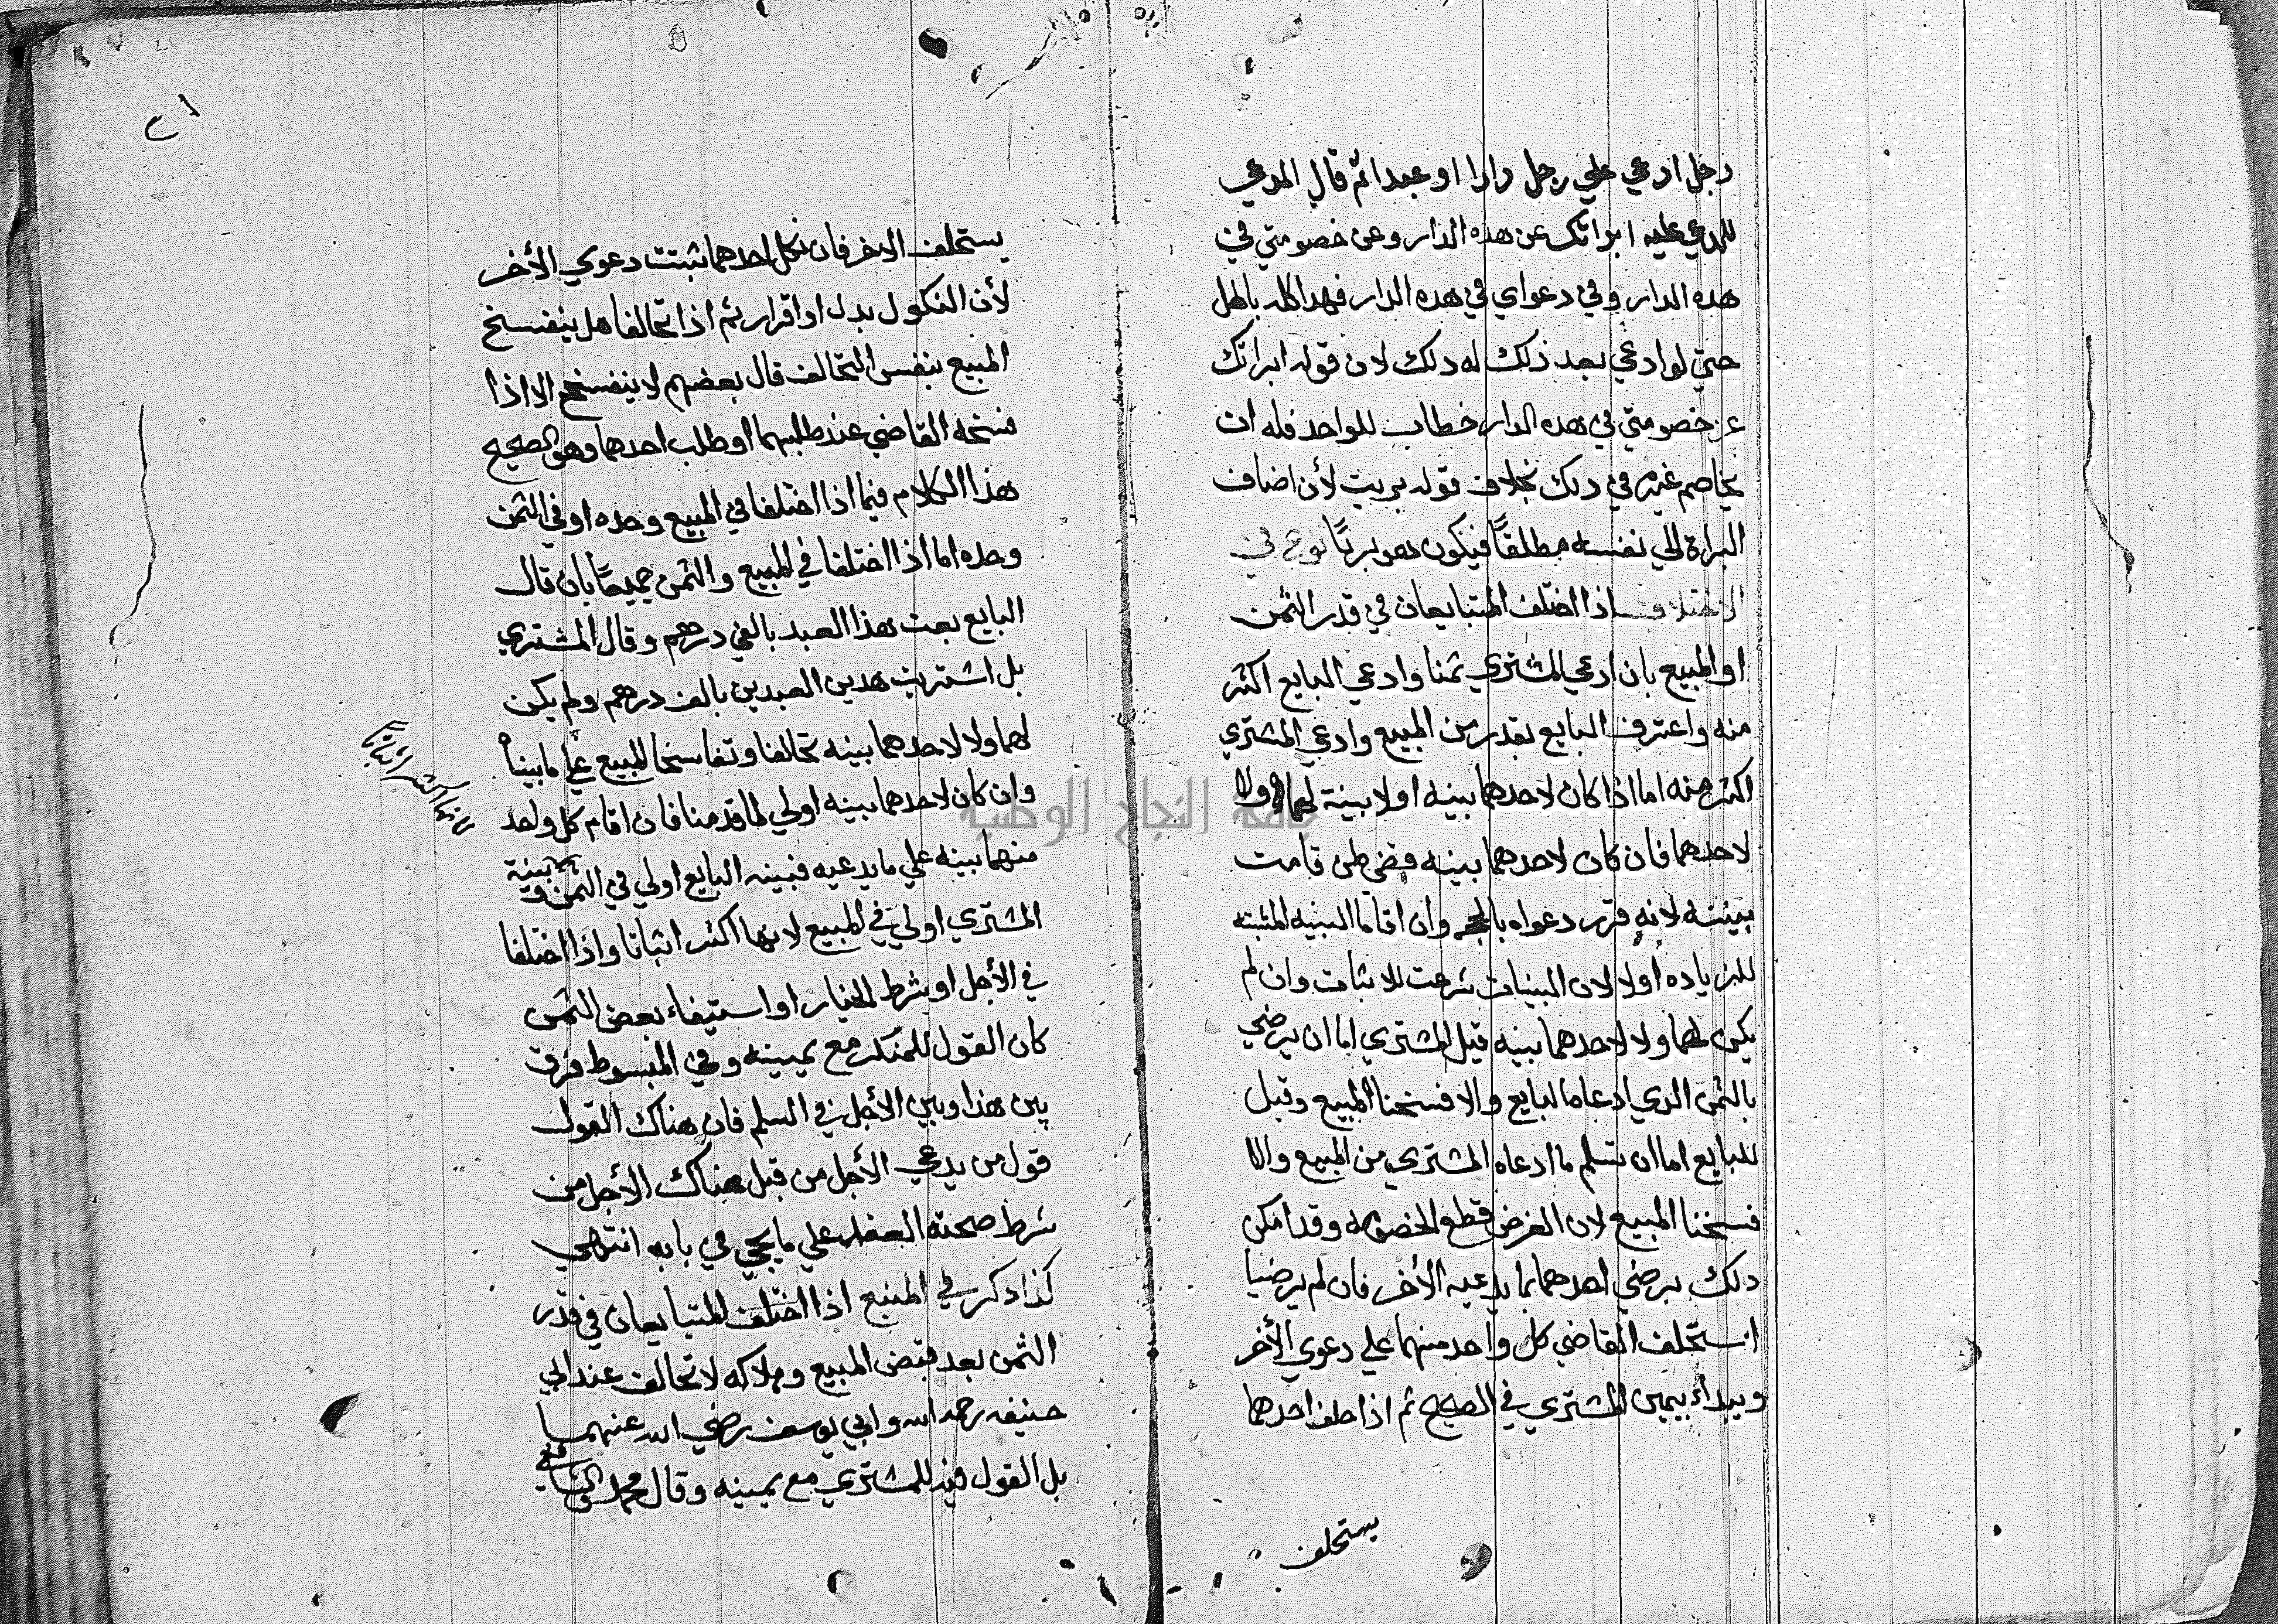 رجل ادعي علي رجل دارا او عبدا ثم قال المدعي
للمدعي عليه ابراتك عن هده الدار وعن خصومتي في
هده الدار وفي دعواي في هده الدار فهدا كله باطل
حتي لو ادعي بعد ذلك له دلك لان قوله ابراتك
عن خصومتي في هده الدار خطاب للواحد فله ان
يخاصم غيره في دلك بخلاف قوله بريت لأن اضاف
البراة الي نفسه مطلقًا فيكون هو بريًا نوع في
الاختلاف اذا اختلف المتبايعان في قدر الثمن
او المبيع بان ادعي المشتري ثمنا وادعي البايع اكثر
منه واعترف البايع بقدر من المبيع وادعي المشتري
اكثر منه اما اذا كان لاحدهما بينه او لا بينة لهما ولا
لاحدهما فان كان لاحدهما بينه قضي لمن قامت
ببينه لانه قرر دعواه بالحجه وان اقاما البينه المثبته
للزياده أولا لان البينات شرعت للاثبات وان لم
يكن لهما ولا لاحدهما بينه قيل للمشتري اما ان يرضي
بالثمن الدي ادعاه البايع والا فسخنا المبيع وقيل
للبايع اما ان تسلم ما ادعاه المشتري من المبيع والا
فسخنا المبيع لان الغرض قطع الخصومه وقد امكن
دلك برضي احدهما بما يدعيه الأخر فان لم يرضيا
استحلف القاضي كل واحد منهما علي دعوي الأخر
ويبداء بيمين المشتري في الصحيح ثم اذا حلف احدهما
يستحلف
ا٢
يستحلف الاخر فان نكل احدهما ثبتت دعوي الأخر
لأن النكول بدل او اقرار ثم اذا تحالفا هل ينفسخ
المبيع بنفس التحالف قال بعضهم لا ينفسخ الا اذا
فسخه القاضي عند طلبهما او طلب احدهما وهو الصحيح
هذا الكلام فيما اذا اختلفا في المبيع وحده او في الثمن
وحده اما اذا اختلفا في المبيع والثمن جميعًا بان قال
البايع بعت هذا العبد بالفي درهم وقال المشتري
بل اشتريت هدين العبدين بالف درهم ولم يكن
لهما ولا لاحدهما بينه تحالفا وتفاسخا المبيع علي ما بينا
وان كان لاحدهما بينه اولي لما قدمنا فان اقام كل واحد
لانها اكثر اثباتا
منهما بينه علي ما يدعيه فبينه البايع اولي في الثمن وبينة
المشتري اولي في المبيع لانها اكثر اثباتا واذا اختلفا
في الأجل او شرط الخيار او استيفاء بعض الثمن
كان القول للمنكر مع يمينه وفي المبسوط فرق
بين هذا وبين الأجل في السلم فان هناك القول
قول من يدعي الأجل من قبل هناك الأجل من
شرط صحته العقد علي ما يجي في بابه انتهي
كذا دكر في المنبع اذا اختلف المتبايعان في قدر
الثمن بعد قبض المبيع وهلاكه لا تحالف عند ابي
حنيفه رحمه الله وابي يوسف رضي الله عنهما
بل القول فيه للمشتري مع يمينه وقال محمد والشافعي
جامعة النجاح الوطنية